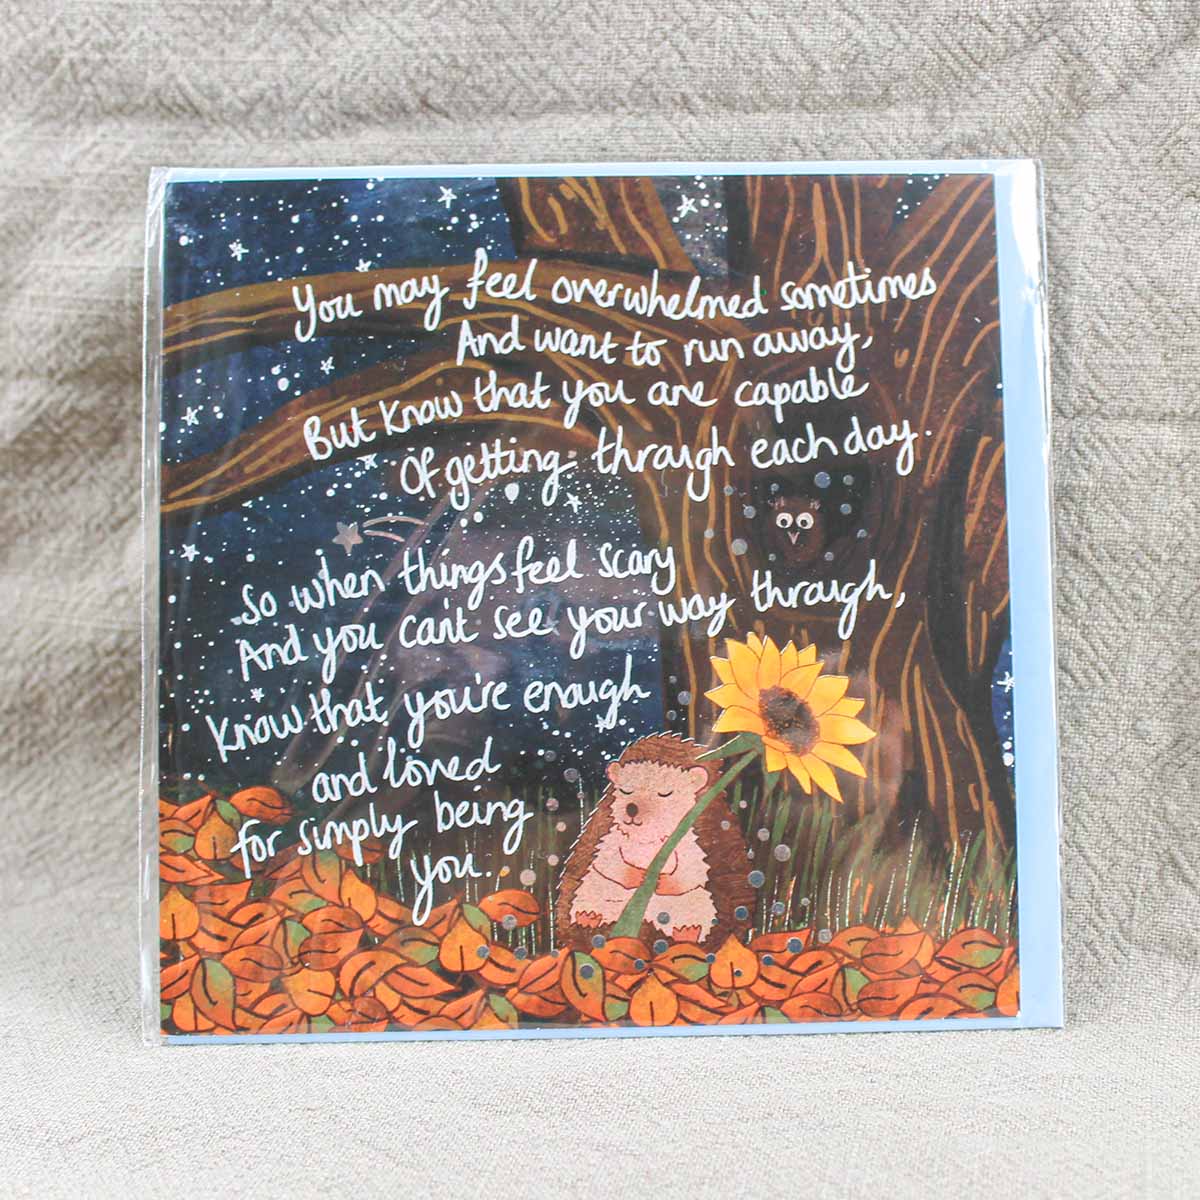 You may feel overwhelmed sometimes
And want to run away,
But know that you are capable
Of getting through each day.
So when things feel scary
And you can't see your way through,
Know that you're enough
and loved
for simply being
you.